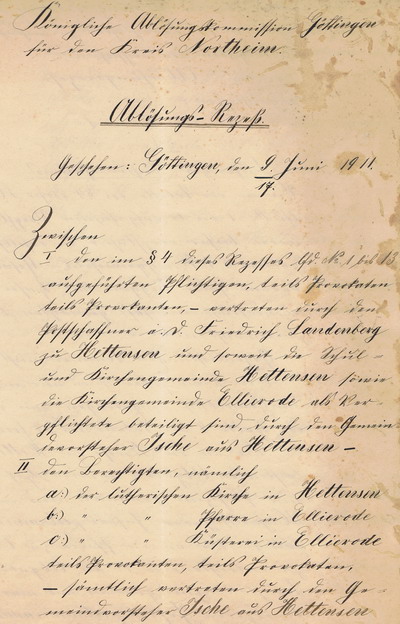 Königliche Ablösungskommission Göttingen
für den Kreis Northeim.
Ablösungs-Rezeß.
Geschehen: Göttingen, den 9. Juni 1911.
17.
Zwischen
I den im § 4 dieses Rezesses lfd. No 1 bis 13
aufgeführten Pflichtigen, teils Provokaten
teils Provokanten, – vertreten durch den
Postschaffner a. D. Friedrich Landenberg
zu Hettensen und soweit die Schul-
und Kirchengemeinde Hettensen sowie
die Kirchengemeinde Ellierode als Ver-
pflichtete beteiligt sind, durch den Gemein
devorsteher Ische aus Hettensen –
II den Berechtigten, nämlich
a.) der lutherischen Kirche in Hettensen
b.) " " Pfarre in Ellierode
c.) " " Küsterei in Ellierode
teils Provokanten, teils Provokaten,
– sämtlich vertreten durch den Ge-
meindevorsteher Ische aus Hettensen